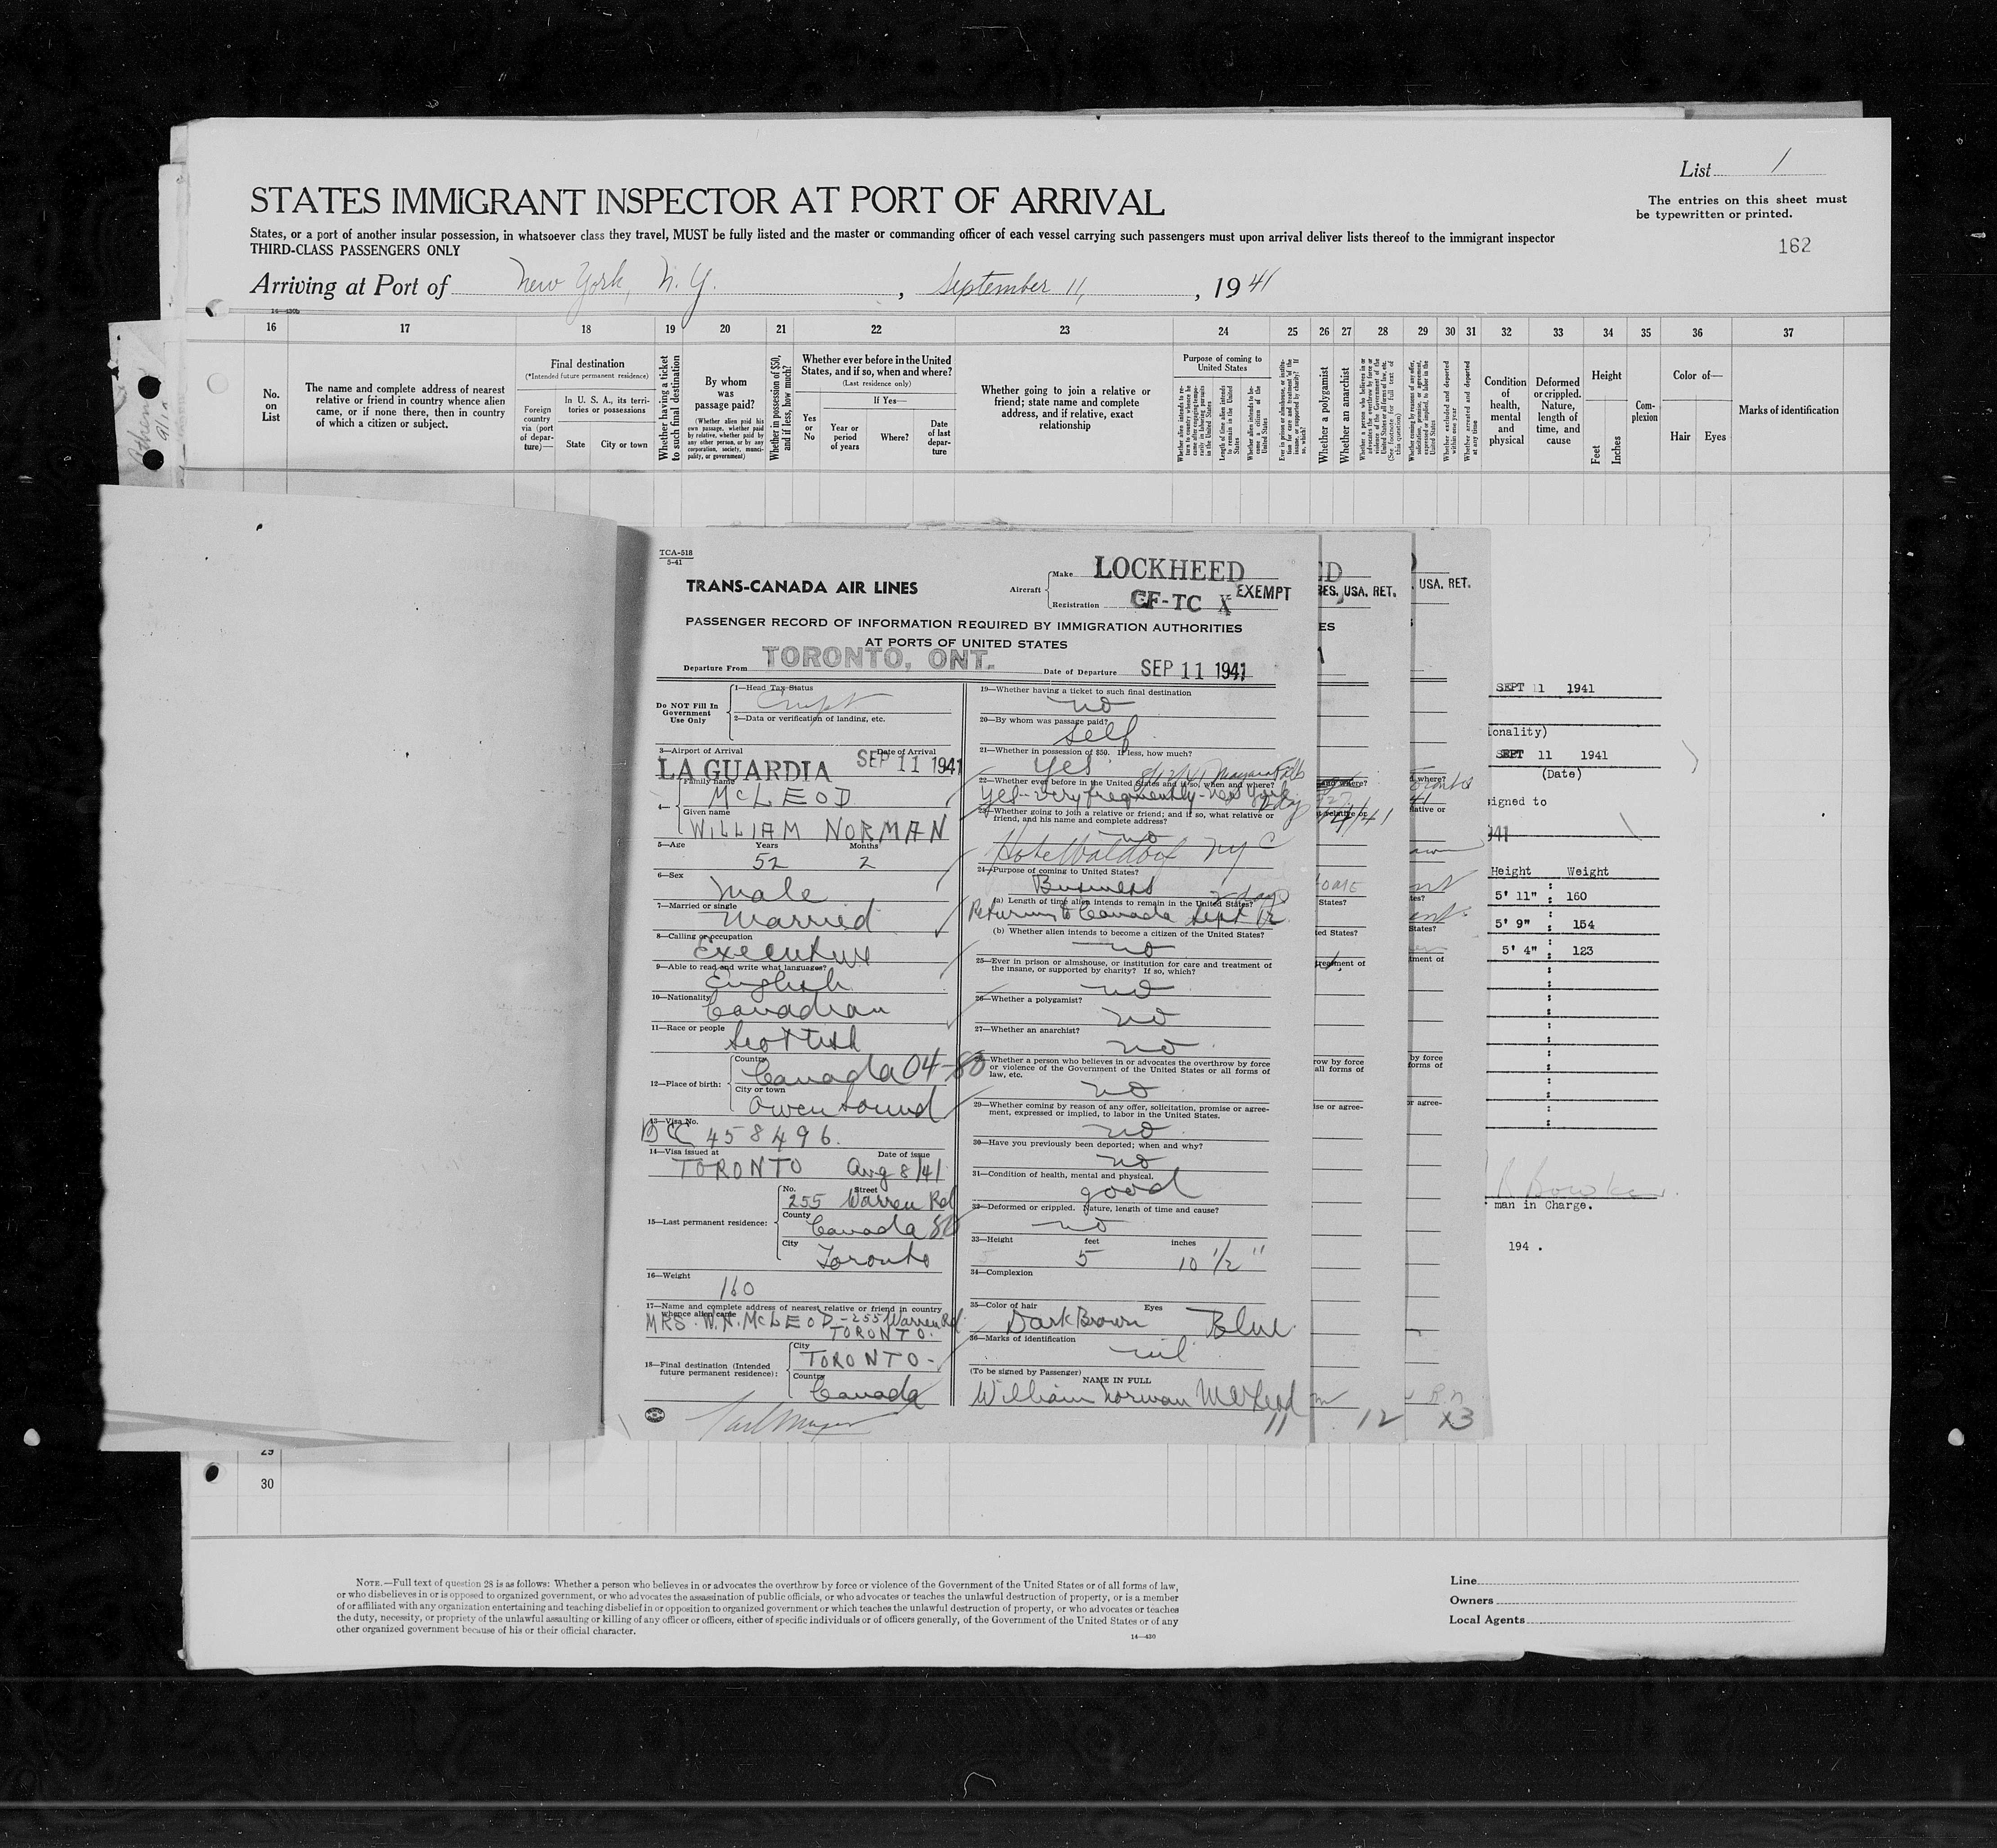 List 1
STATES IMMIGRANT INSPECTOR AT PORT OF ARRIVAL
The entries on this sheet must
be typewritten or printed.
States, or a port of another insular possession, in whatsoever class they travel, MUST be fully listed and the master or commanding officer of each vessel carrying such passengers must upon arrival deliver lists thereof to the immigrant inspector
THIRD-CLASS PASSENGERS ONLY
162
Arriving at Port of New York, N.Y. , September 11, , 1941
14—430b
16 17 18 19 20 21 22 23 24 25 26 27 28 29 30 31 32 33 34 35 36 37
No. on List
The name and complete address of nearest relative or friend in country whence alien came, or if none there, then in country of which a citizen or subject.
Final destination
(*Intended future permanent residence)
Foreign country via (port of departure)—
In U. S. A., its territories or possessions
State
City or town
Whether having a ticket to such final destination
By whom was passage paid?
(Whether alien paid his own passage, whether paid by relative, whether paid by any other person, or by any corporation, society, municipality, or government)
Whether in possession of $50, and if less, how much?
Whether ever before in the United States, and if so, when and where?
(Last residence only)
Yes or No
If Yes—
Year or period of years
Where?
Date of last departure
Whether going to join a relative or friend; state name and complete address, and if relative, exact relationship
Purpose of coming to United States
Whether alien intends to return to country whence he came after engaging temporarily in laboring pursuits in the United States
Length of time alien intends to remain in the United States
Whether alien intends to become a citizen of the United States
Ever in prison or almshouse, or institution for care and treatment of the insane, or supported by charity? If so, which?
Whether a polygamist
Whether an anarchist
Whether a person who believes in or advocates the overthrow by force or violence of the Government of the United States or all forms of law, etc. (See footnote for full text of this question)
Whether coming by reason of any offer, solicitation, promise, or agreement, expressed or implied, to labor in the United States
Whether excluded and deported within one year
Whether arrested and deported at any time
Condition of health, mental and physical
Deformed or crippled. Nature, length of time, and cause
Height
Feet
Inches
Complexion
Color of—
Hair
Eyes
Marks of identification
TCA-518
5-41
TRANS-CANADA AIR LINES
Aircraft
Make LOCKHEED
Registration CF-TC X
EXEMPT
PASSENGER RECORD OF INFORMATION REQUIRED BY IMMIGRATION AUTHORITIES
AT PORTS OF UNITED STATES
Departure From TORONTO, ONT. Date of Departure SEP 11 1941
Do NOT Fill In
Government
Use Only
1—Head Tax Status
2—Data or verification of landing, etc.
3—Airport of Arrival Date of Arrival
LA GUARDIA SEP 11 1941
4— Family name
McLEOD
Given name
WILLIAM NORMAN
5—Age Years Months
52 2
6—Sex
Male
7—Married or single
Married
8—Calling or occupation
Executive
9—Able to read and write what languages?
English
10—Nationality
Canadian
11—Race or people
Scottish
12—Place of birth:
Country
Canada 04-80
City or town
Owen Sound
13—Visa No.
458496.
14—Visa issued at Date of issue
TORONTO Aug 8/41
15—Last permanent residence:
No. Street
255 Warren Rd
County
Canada 80
City
Toronto
16—Weight
160
17—Name and complete address of nearest relative or friend in country
whence alien came
MRS. W.N. McLEOD - 255 Warren Rd.
TORONTO.
18—Final destination (Intended
future permanent residence):
City
TORONTO-
Country
Canada
19—Whether having a ticket to such final destination
no
20—By whom was passage paid?
Self
21—Whether in possession of $50. If less, how much?
Yes
8/12/41 Niagara Falls
22—Whether ever before in the United States and if so, when and where?
Yes - very frequently - New York
23—Whether going to join a relative or friend; and if so, what relative or
friend, and his name and complete address?
no
Hotel Waldorf NYC
24—Purpose of coming to United States?
Business 2 days
(a) Length of time alien intends to remain in the United States?
Returning to Canada Sept 12
(b) Whether alien intends to become a citizen of the United States?
no
25—Ever in prison or almshouse, or institution for care and treatment of
the insane, or supported by charity? If so, which?
no
26—Whether a polygamist?
no
27—Whether an anarchist?
no
28—Whether a person who believes in or advocates the overthrow by force
or violence of the Government of the United States or all forms of
law, etc.
no
29—Whether coming by reason of any offer, solicitation, promise or agree-
ment, expressed or implied, to labor in the United States.
no
30—Have you previously been deported; when and why?
no
31—Condition of health, mental and physical.
good
32—Deformed or crippled. Nature, length of time and cause?
no
33—Height feet inches
5 10 1/2"
34—Complexion
35—Color of hair Eyes
Dark Brown Blue
36—Marks of identification
nil
(To be signed by Passenger) NAME IN FULL
William Norman McLeod
11 12 X3
ED
RES. USA. RET.
USA. RET.
SEPT 11 1941
ionality)
SEPT 11 1941
(Date)
signed to
Height Weight
5' 11" : 160
5' 9" : 154
5' 4" : 123
man in Charge.
194 .
29
30
NOTE.—Full text of question 28 is as follows: Whether a person who believes in or advocates the overthrow by force or violence of the Government of the United States or of all forms of law,
or who disbelieves in or is opposed to organized government, or who advocates the assassination of public officials, or who advocates or teaches the unlawful destruction of property, or is a member
of or affiliated with any organization entertaining and teaching disbelief in or opposition to organized government or which teaches the unlawful destruction of property, or who advocates or teaches
the duty, necessity, or propriety of the unlawful assaulting or killing of any officer or officers, either of specific individuals or of officers generally, of the Government of the United States or of any
other organized government because of his or their official character.
14—430
Line
Owners
Local Agents